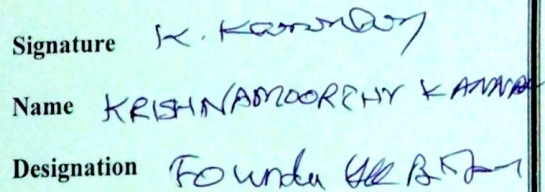 Signature K. Kannan
Name KRISHNAMOORTHY KANNAN
Designation Founder